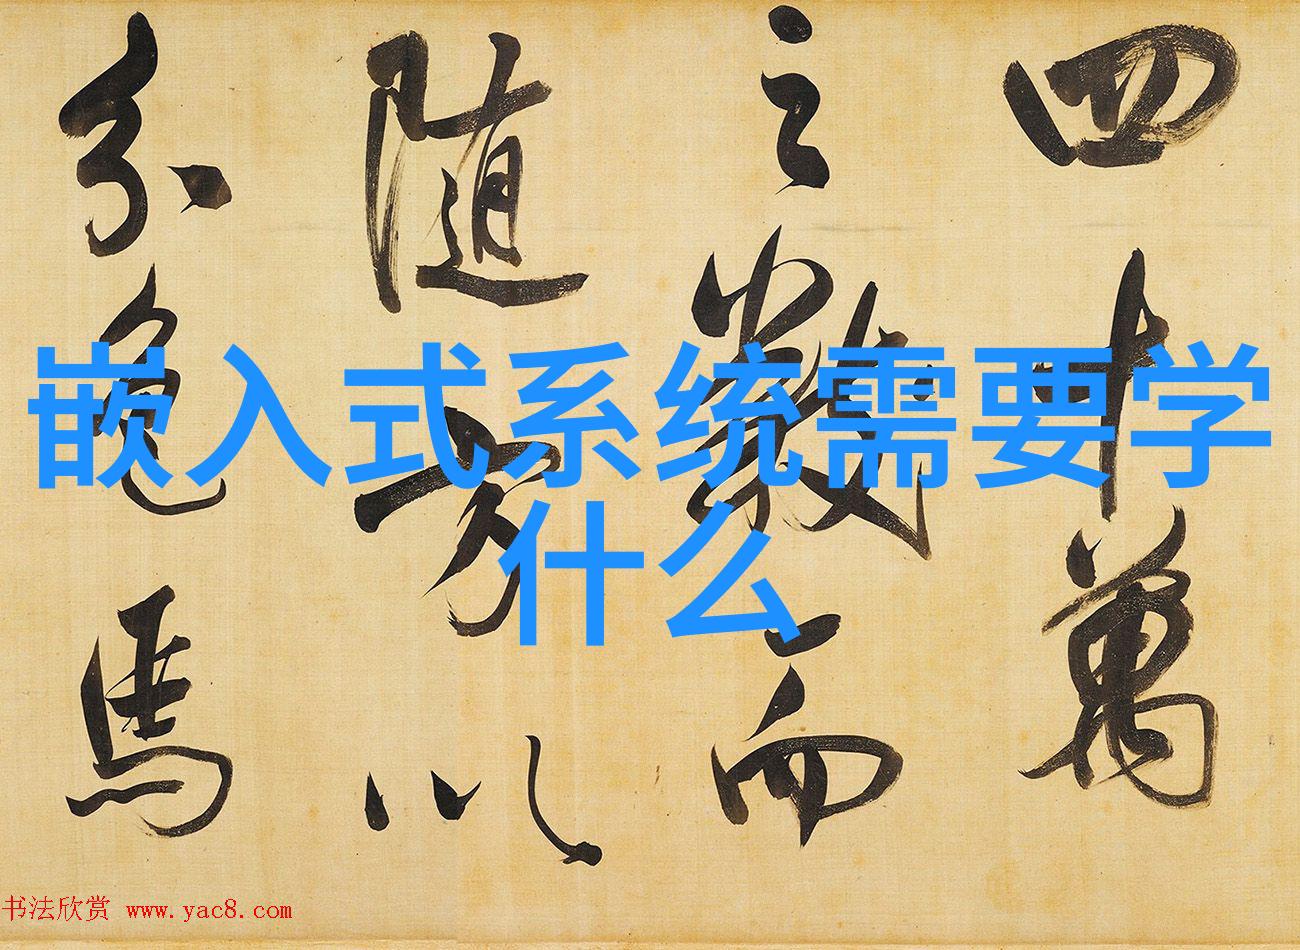 嵌入式系统需要学
什么
四十萬
之數而
随方以
分色馬
书法欣赏 www.yac8.com